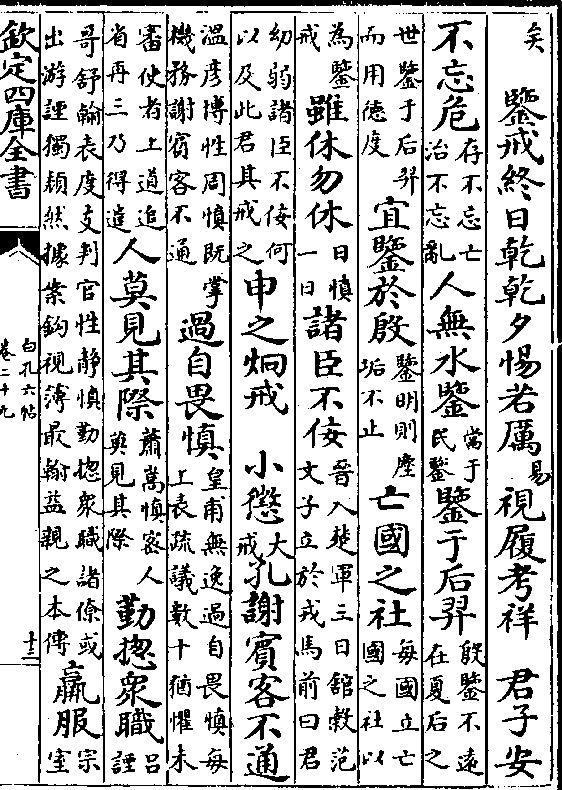 矣　鑒戒終日乾乾夕惕若厲易　視履考祥　君子安
不忘危存不忘亡治不忘亂人無水鑒當于民鑒鑒于后羿殷鑒不遠在夏后之
世鑒于后羿而用德度宜鑒於殷鑒明則塵垢不止亡國之社每國立亡國之社以
為鑒戒雖休勿休日慎一日諸臣不佞晉入楚軍三日館穀范文子立於戎馬前曰君
幼弱諸臣不佞何以及此君其戒之申之炯戒　小懲大戒孔謝賓客不通
溫彥博性周慎既掌機務謝賓客不通過自畏慎皇甫無逸過自畏慎每上表疏議數十猶懼未
審使者上道追省再三乃得遣人莫見其際蕭嵩慎密人莫見其際勤揔衆職呂諲
哥舒翰表度支判官性靜慎勤揔衆職諸僚或出游諲獨頹然據案鈎視簿最翰益親之本傳羸服宗室
欽定四庫全書
白孔六帖
卷二十九
十三